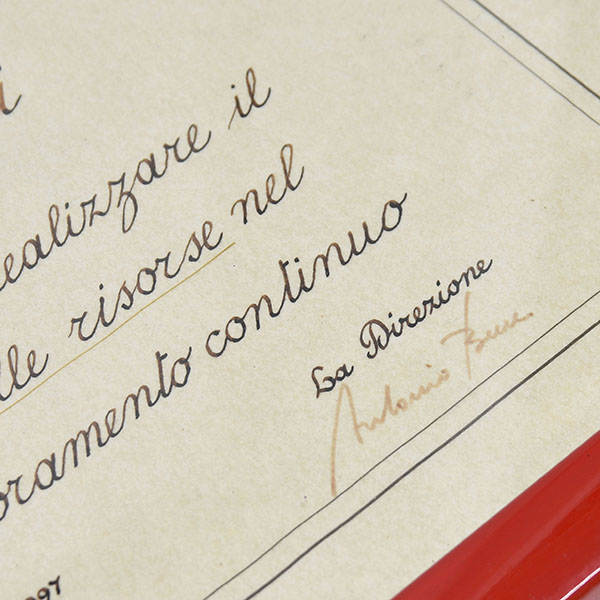 i
realizzare il
lle risorse nel
oramento continuo
La Direzione
Antonio
997